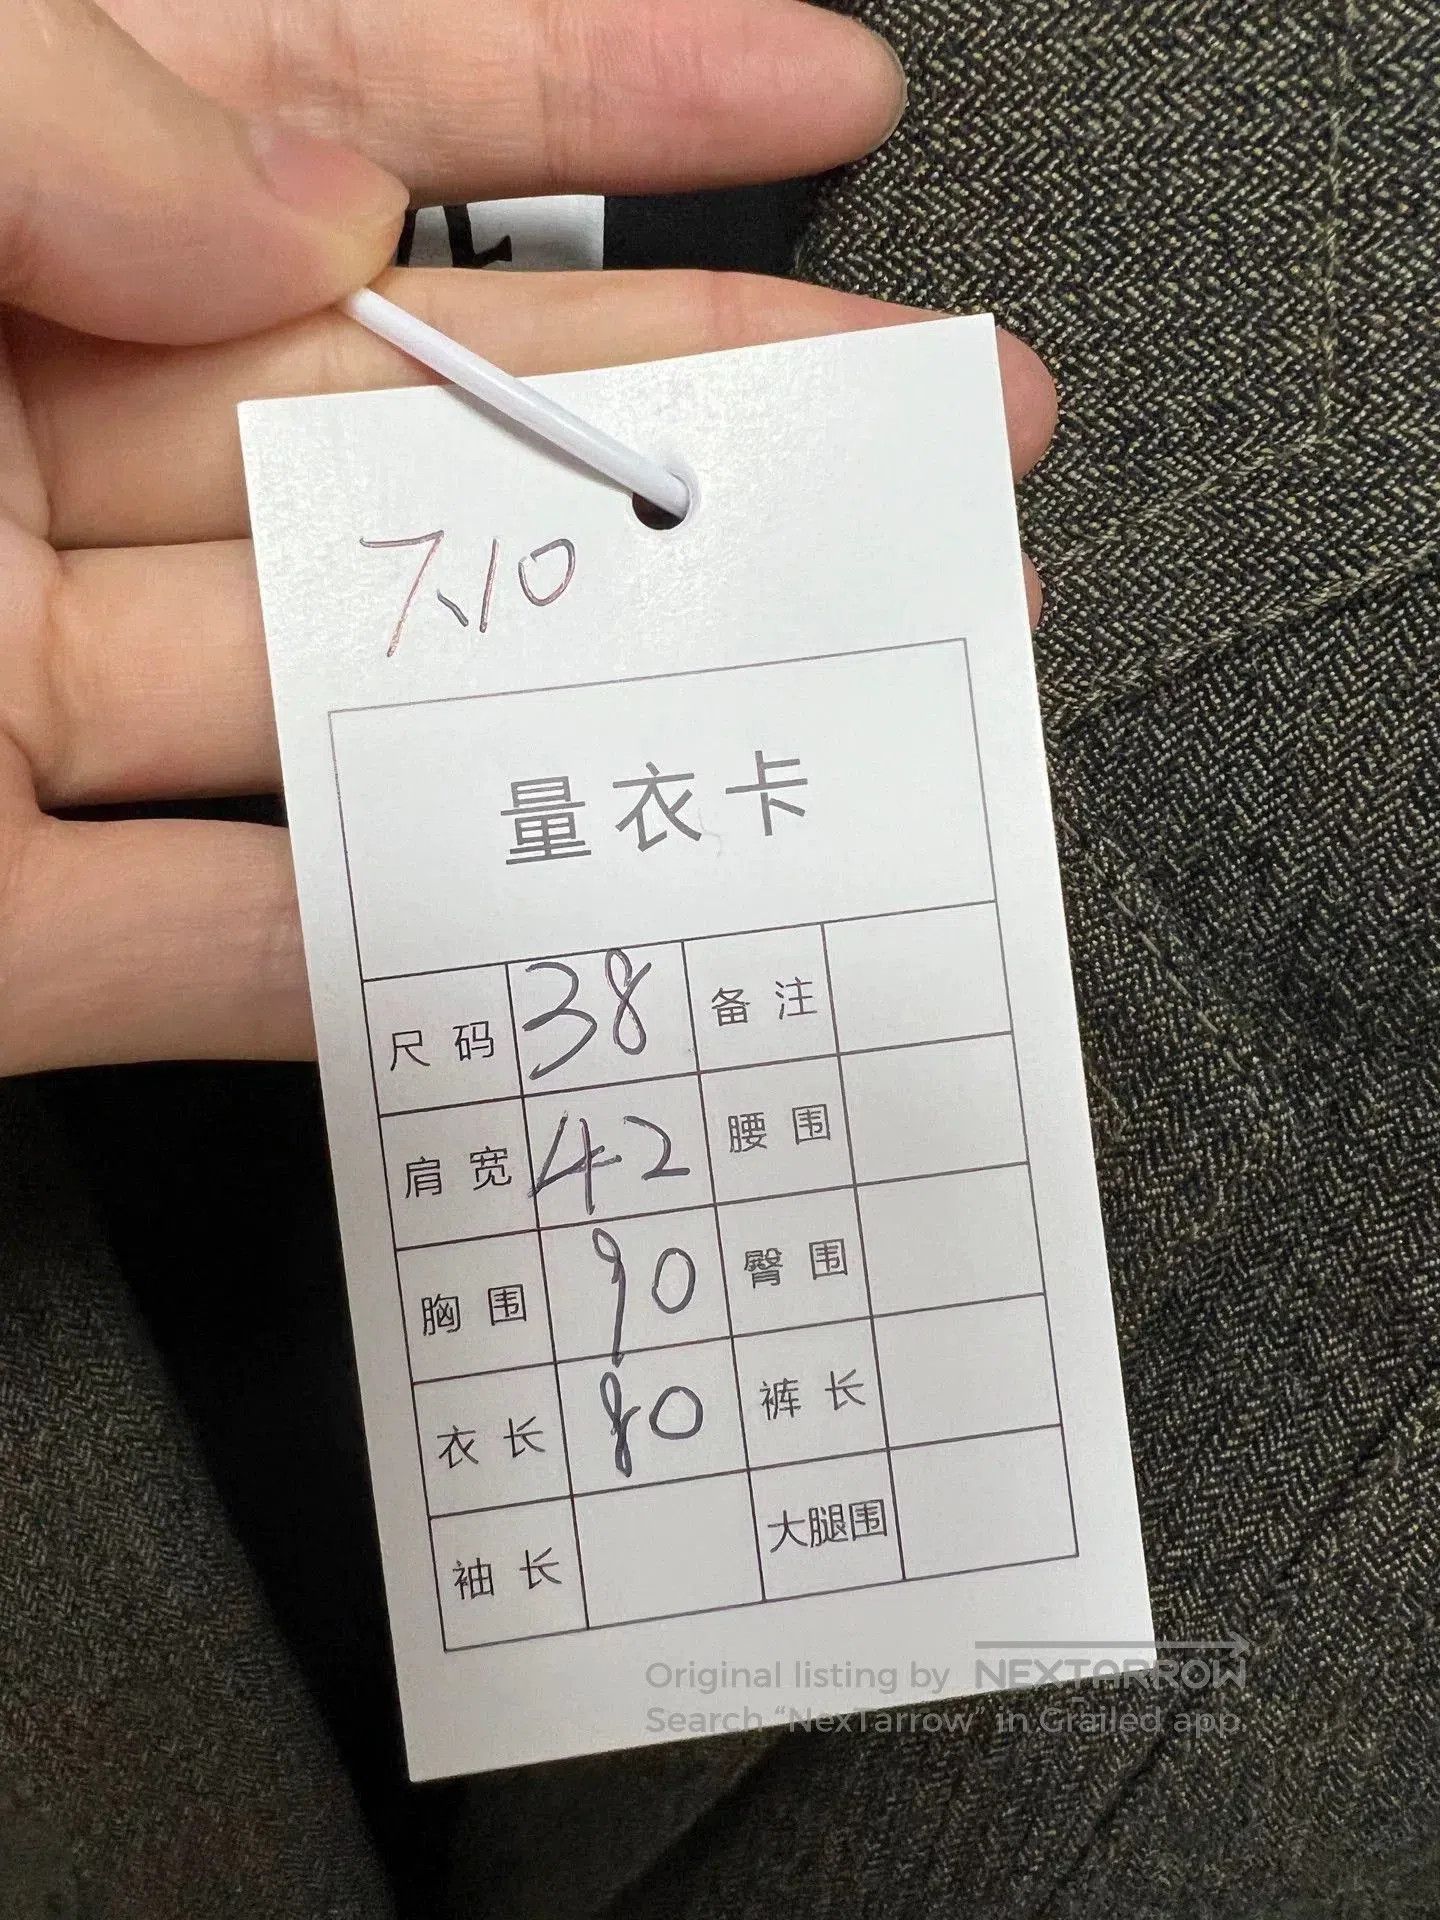 7.10
量衣卡
尺码 38 备注
肩宽 42 腰围
胸围 90 臀围
衣长 80 裤长
袖长 大腿围
Original listing by NEXTARROW
Search “NexTarrow” in Grailed app